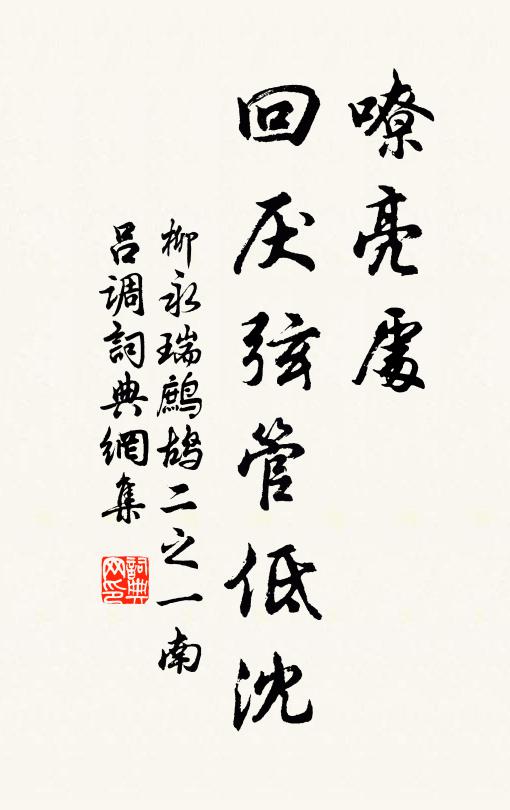 嘹亮處
回厌弦管低沈
柳永瑞鷓鴣二之一南
呂调詞典網集
詞典
网印